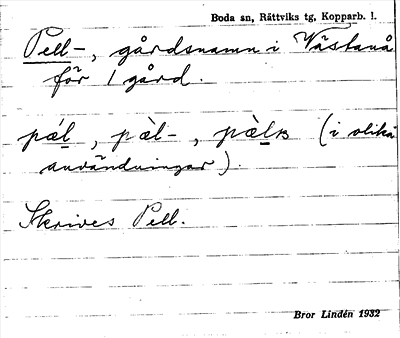 Boda sn, Rättviks tg, Kopparb. l.
Pell-, gårdsnamn i Västanå
för 1 gård.
pál, pàl-, pàls (i olika
användningar).
Skrives Pell.
Bror Lindén 1932